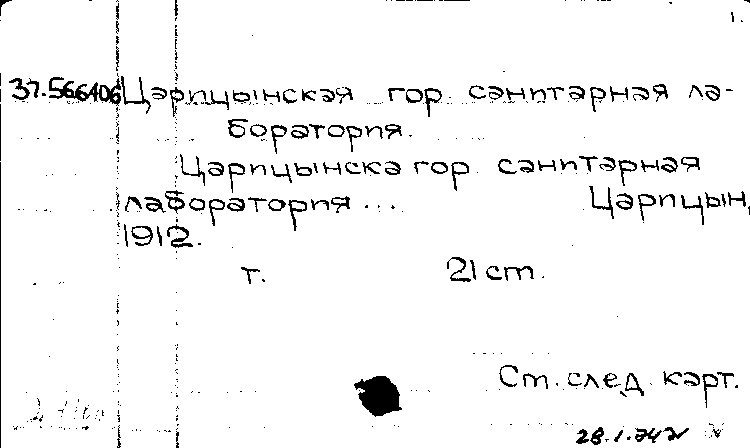 1.
37.566406 Царицынская гор. санитарная ла-
боратория.
Царицынска гор. санитарная
лаборатория... Царицын,
1912.
т. 21 cm.
См. след. карт.